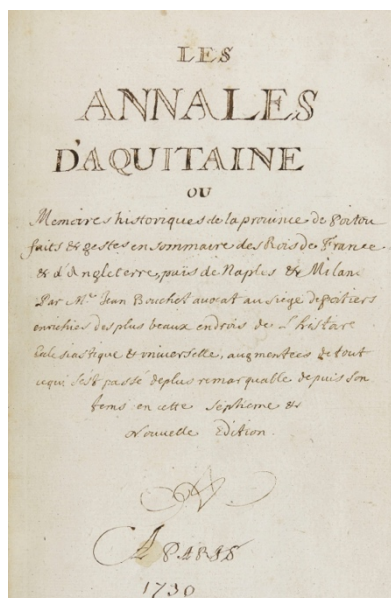 LES
ANNALES
D'AQUITAINE
OU
Memoires historiques de la prouince de Poitou
faits & gestes en sommaire des Rois de France
& d'Angleterre, puis de Naples & Milan
Par Mr. Jean Bouchet auocat au siege de poitiers
enrichies des plus beaux endrois de l'histoire
Eclesiastique & vniuerselle, augmentées de tout
cequi s'est passé deplus remarquable depuis son
tems en cette septieme &
Nouuelle Edition.
A PARIS
1730